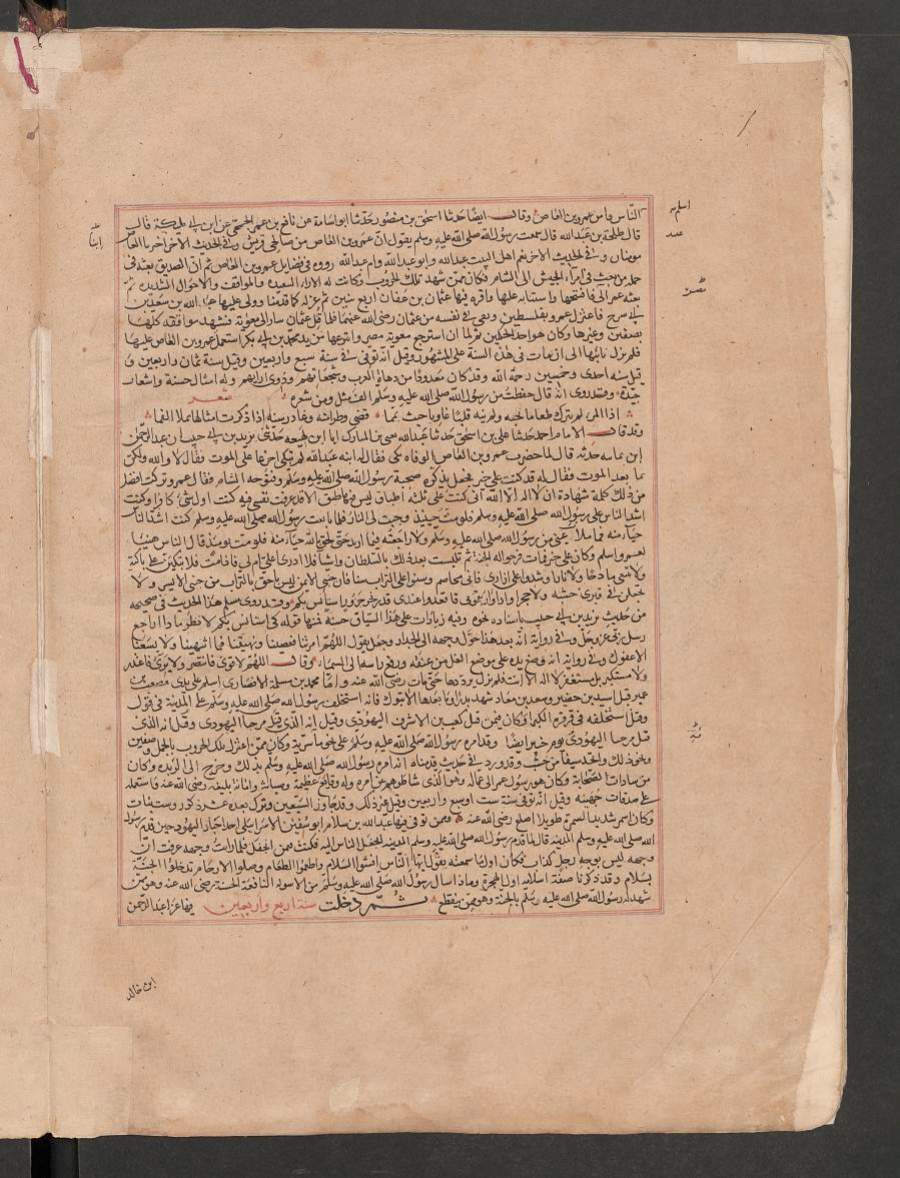 الناس وامن عمرو بن العاص وقال ايضا حدثنا اسحق بن منصور حدثنا ابو اسامة عن نافع بن عمر الجمحي عن ابن ابي مليكة قال
قال طلحة بن عبد الله قال سمعت رسول الله صلى الله عليه وسلم يقول ان عمرو بن العاص من صالحي قريش وفي الحديث الاخر ابنا العاص
مومنان وفي الحديث الاخر نعم اهل البيت عبد الله وابو عبد الله وام عبد الله رووه في فضايل عمرو بن العاص ثم ان الصديق بعثه في
جملة من بعث في امراء الجيش الى الشام فكان ممن شهد تلك الحروب وكانت له الاراء السديده والمواقف والاحوال الشديده ثم
بعثه عمر الى فافتتحها واستنابه عليها واقره فيها عثمان بن عفان اربع سنين ثم عزله كما قدمنا وولى عليها عبد الله بن سعد بن
ابي سرح فاعتزل عمرو بفلسطين وبقي في نفسه من عثمان رضي الله عنهما فلما قتل عثمان سار الى معوية فشهد مواقفه كلها
بصفين وغيرها وكان هو احد الحكمين ثم لما ان استرجع معوية مصر وانتزعها من يد محمد بن ابي بكر استعمل عمرو بن العاص عليها
فلم يزل نايبها الى ان مات في هذه السنة على المشهور وقيل انه توفي في سنة سبع واربعين وقيل سنة ثمان واربعين و
قيل سنه احدى وخمسين رحمه الله وقد كان معدودا من دهاة العرب وشجعانهم وذوي ارايهم وله امثال حسنة واشعار
جيدة وقد روى انه قال حفظت من رسول الله صلى الله عليه وسلم الف مثل ومن شعره شعر
اذا المرء لم يترك طعاما يحبه ولم ينه قلبا غاويا حيث يمما قضى وطرا منه وغادر سبة اذا ذكرت امثالها تملا الفما
وقد قال الامام احمد حدثنا علي بن اسحق حدثنا عبد الله يعني ابن المبارك انا ابن لهيعه حدثني يزيد بن ابي حبيب ان عبد الرحمن
ابن شماسه حدثه قال لما حضرت عمرو بن العاص الوفاه بكى فقال له ابنه عبد الله لم تبكي اجزعا على الموت فقال لا والله ولكن
مما بعد الموت فقال له قد كنت على خير فجعل يذكره صحبة رسول الله صلى الله عليه وسلم وفتوحه الشام فقال عمرو تركت افضل
من ذلك كلمة شهادة ان لا اله الا الله اني كنت على ثلثة اطباق ليس فيها طبق الا قد عرفت نفسي فيه كنت اول شيء كافرا وكنت
اشد الناس على رسول الله صلى الله عليه وسلم فلو مت حينيذ وجبت لي النار فلما بايعت رسول الله صلى الله عليه وسلم كنت اشد الناس
حياء منه فما ملات عيني من رسول الله صلى الله عليه وسلم ولا راجعته فيما اريد حتى لحق بالله حياء منه فلو مت يوميذ قال الناس هنيئا
لعمرو اسلم وكان على خير فمات نرجو له الجنة ثم تلبست بعد ذلك بالسلطان واشياء فلا ادري علي ام لي فاذا مت فلا تبكين علي باكية
ولا تتبعني مادحا ولا نارا وشدوا علي ازاري فاني مخاصم وسنوا علي التراب سنا فان جنبي الايمن ليس باحق بالتراب من جنبي الايسر ولا
تجعلن في قبري خشبه ولا حجرا واذا واريتموني فاقعدوا عندي قدر نحر جزور استانس بكم وقد روى مسلم هذا الحديث في صحيحه
من حديث يزيد بن ابي حبيب باسناده نحوه وفيه زيادات على هذا السياق حسنة فمنها قوله كي استانس بكم لانظر ماذا اراجع
رسل ربي عز وجل وفي رواية انه بعد هذا حول وجهه الى الجدار وجعل يقول اللهم امرتنا فعصينا ونهيتنا فما انتهينا ولا يسعنا
الا عفوك وفي رواية انه وضع يده على موضع الغل من عنقه ورفع راسه الى السماء وقال اللهم لا قوي فانتصر ولا بري فاعتذر
ولا مستكبر بل مستغفر لا اله الا انت فلم يزل يرددها حتى مات رضي الله عنه واما محمد بن مسلمة الانصاري اسلم على يدي مصعب بن
عمير قبل اسيد بن حضير وسعد بن معاذ شهد بدرا وما بعدها الا تبوك فانه استخلفه رسول الله صلى الله عليه وسلم على المدينة في قول
وقيل استخلفه في قرقره الكدر وكان فيمن قتل كعب بن الاشرف اليهودي وقيل انه الذي قتل مرحبا اليهودي وقيل انه الذي
قتل مرحبا اليهودي يوم خيبر ايضا وقد امره رسول الله صلى الله عليه وسلم على نحو من خمس عشرة سرية وكان ممن اعتزل تلك الحروب بالجمل وصفين
ونحو ذلك واتخذ سيفا من خشب وقد ورد في حديث قدمناه انه امره رسول الله صلى الله عليه وسلم بذلك وخرج الى الربذه وكان
من سادات الصحابة وكان هو رسول عمر الى عماله وهو الذي شاطرهم عن امره وله وقايع عظيمة وصيانة وامانة بليغة رضي الله عنه واستعمله
على صدقات جهينة وقيل انه توفي سنة ست او سبع واربعين وقيل غير ذلك وقد جاوز السبعين وترك بعده عشرة ذكور وست بنات
وكان اسمر شديد السمرة طويلا اصلع رضي الله عنه وممن توفي فيها عبد الله بن سلام ابو يوسف الاسرايلي احد احبار اليهود حين قدم رسول
الله صلى الله عليه وسلم المدينه قال لما قدم رسول الله صلى الله عليه وسلم المدينه انجفل الناس اليه فكنت فيمن انجفل فلما رايت وجهه عرفت ان
وجهه ليس بوجه رجل كذاب فكان اول ما سمعته يقول ايها الناس افشوا السلام واطعموا الطعام وصلوا الارحام تدخلوا الجنة
بسلام وقد ذكرنا صفة اسلامه اول الهجرة وماذا سال رسول الله صلى الله عليه وسلم من الاسوله النافعة الحسنة رضي الله عنه وهو ممن
شهد له رسول الله صلى الله عليه وسلم بالجنة وهو ممن يقطع ثم دخلت سنة اربع واربعين فيها غزا عبد الرحمن
ابن خالد